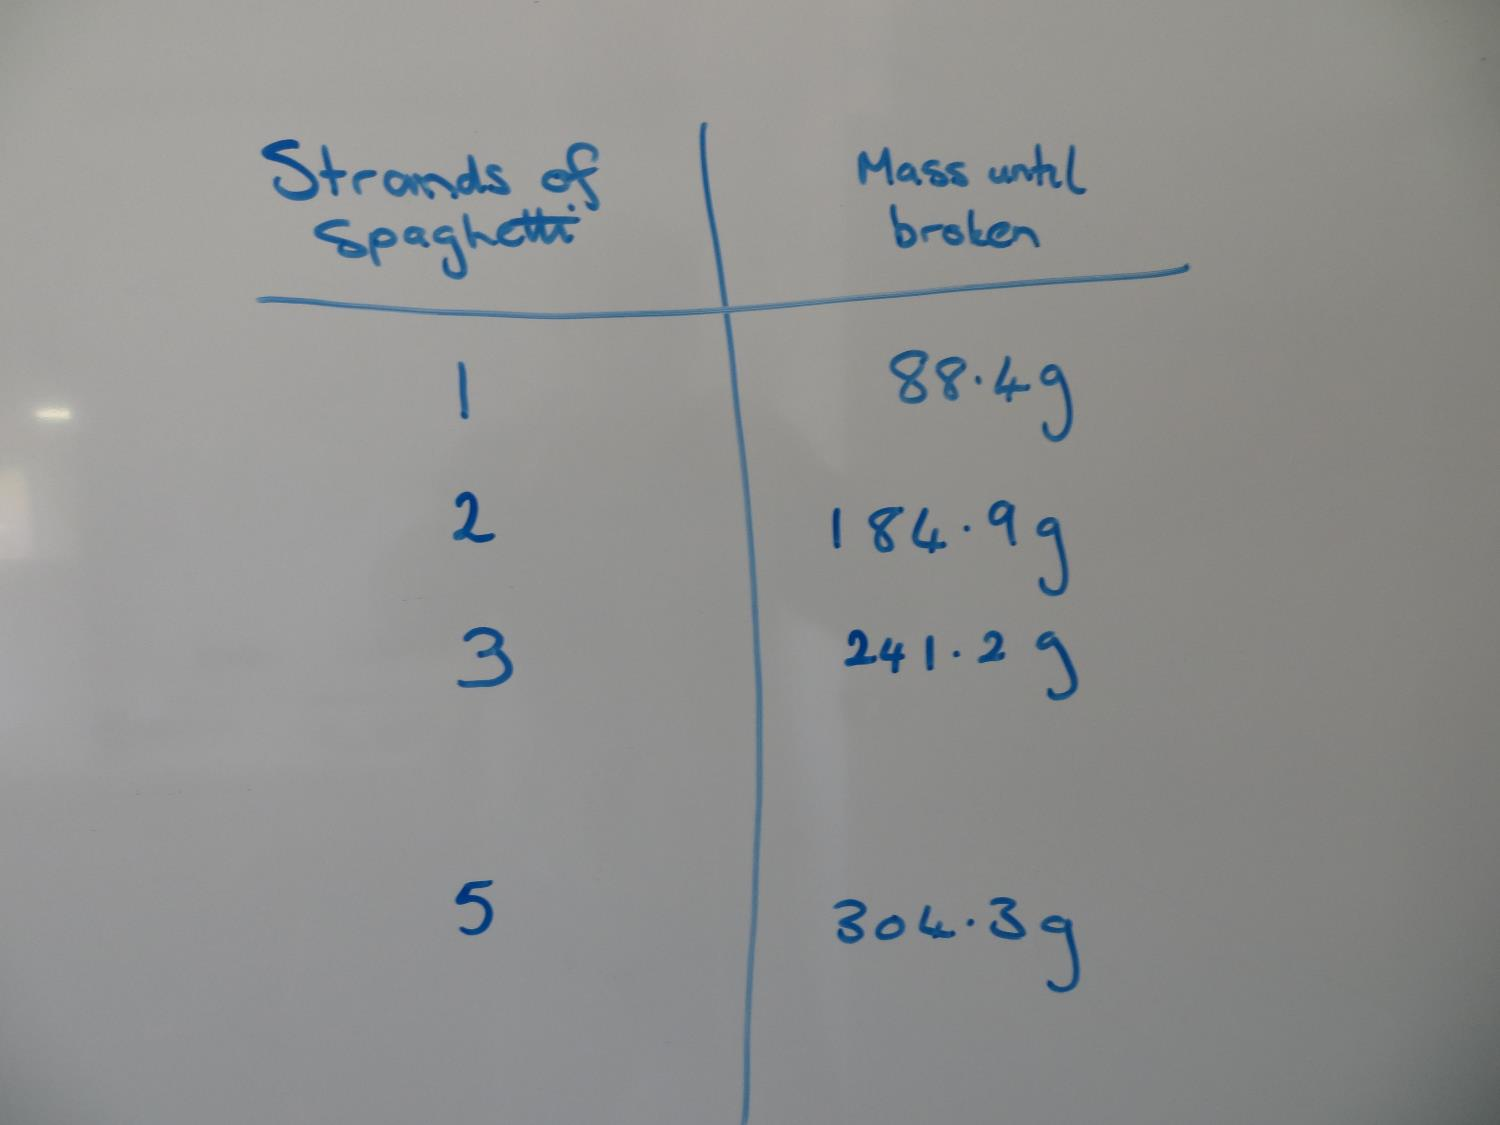 Strands of
Spaghetti
Mass until
broken
1 88.4g
2 184.9g
3 241.2g
5 304.3g